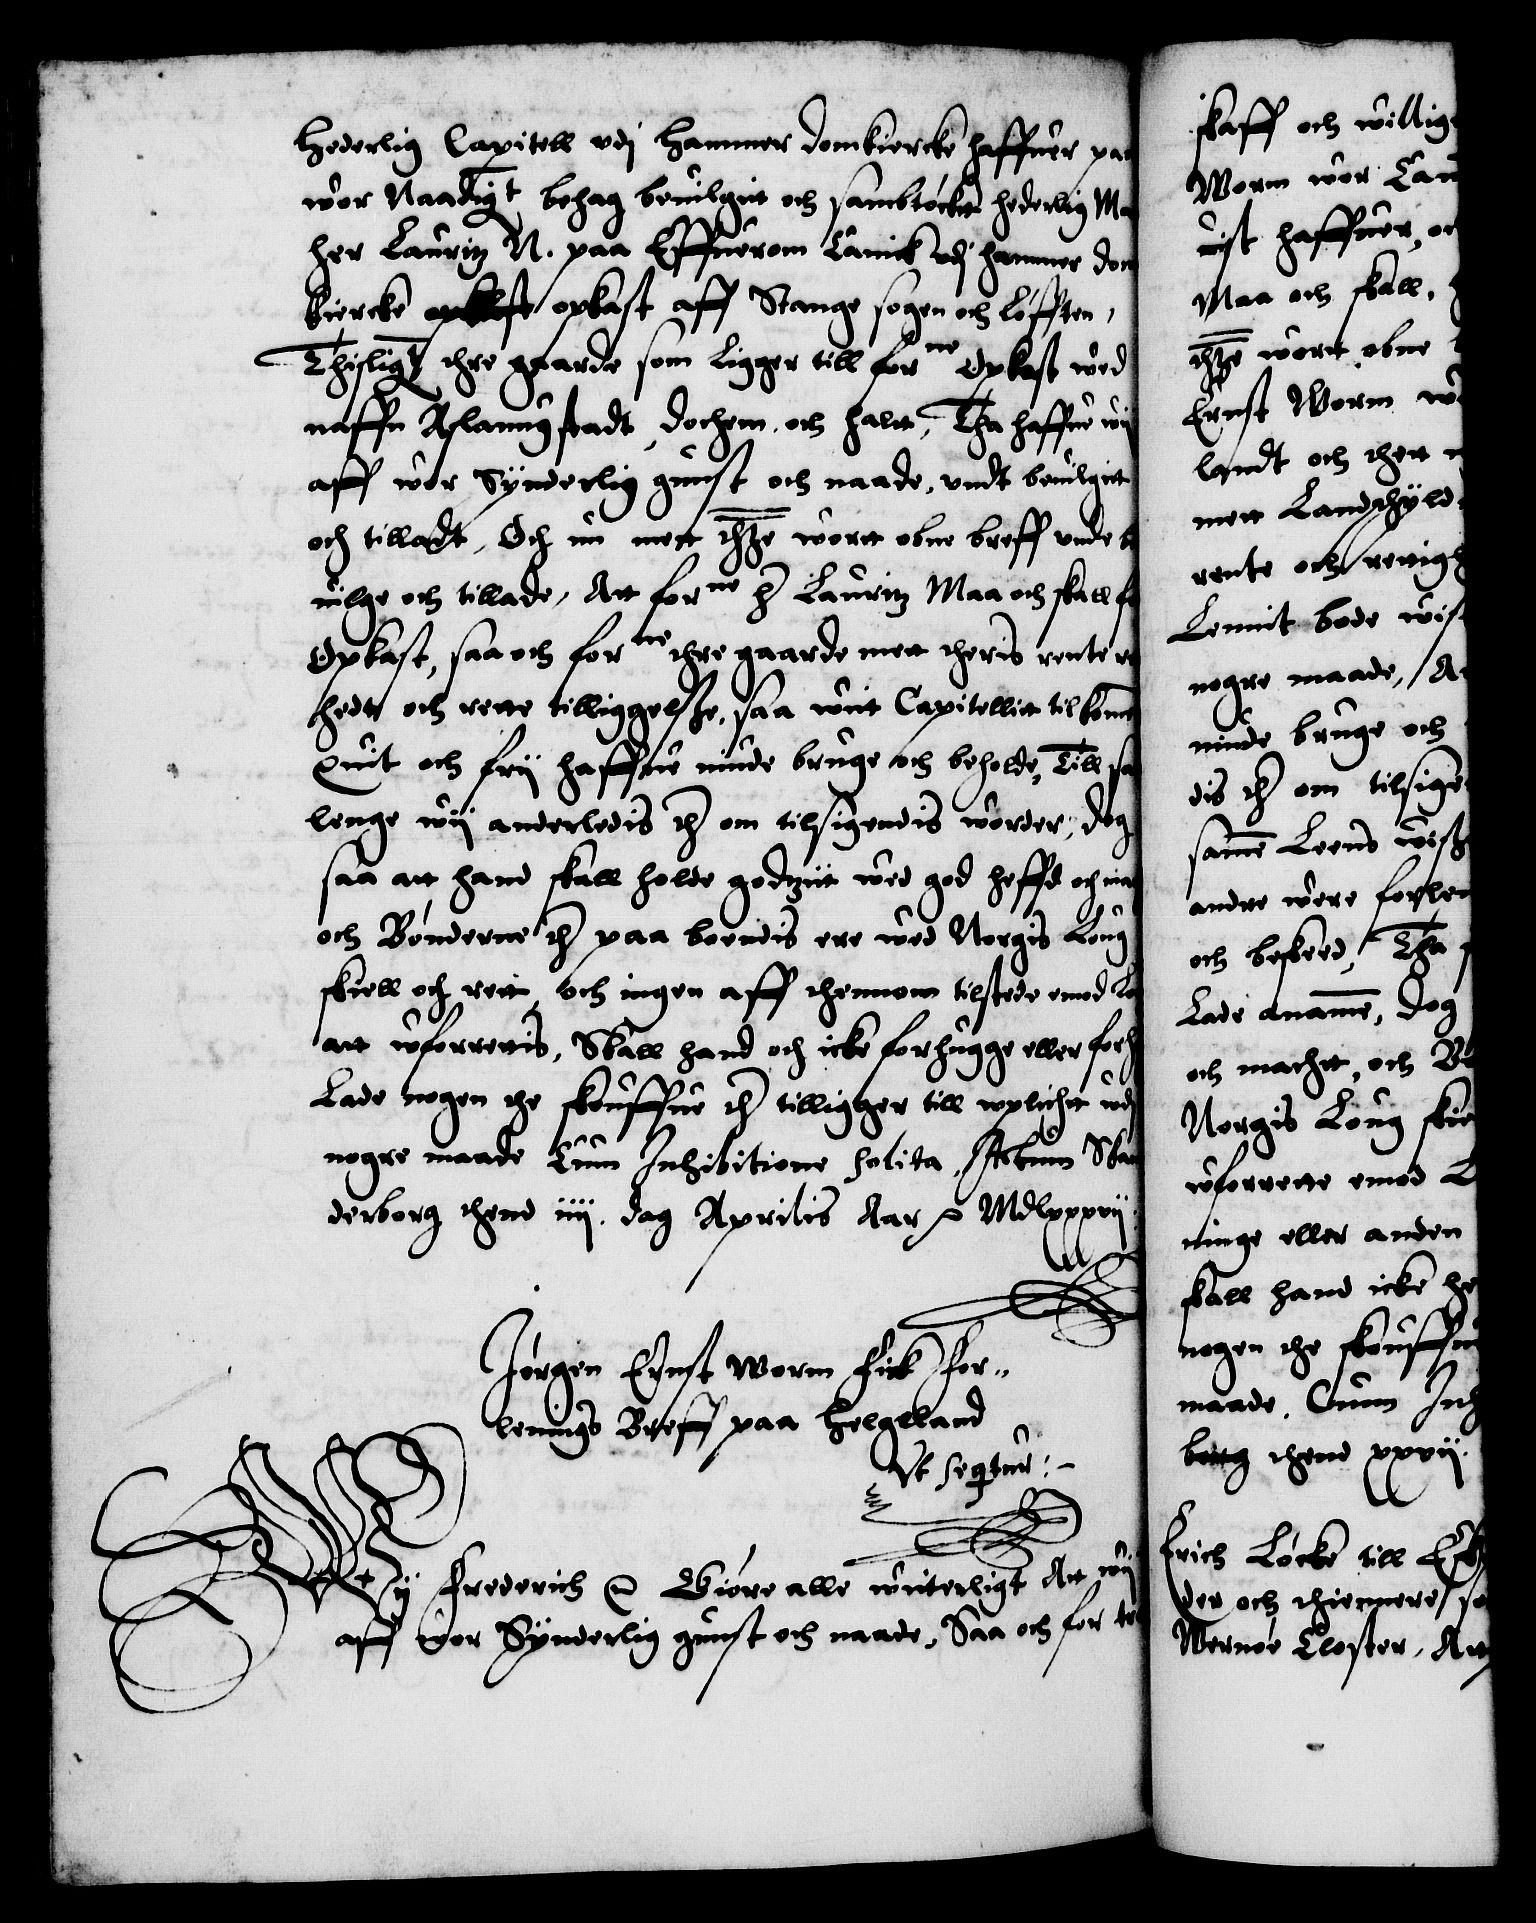 Hederlig Capitell vdj Hammer domkiercke haffuer paa
wor Naadigst behag beuilgit och samtöckt hederlig Ma
her Lauritz N. paa Effuerom Canick vdj hammer dom
kiercke opkast aff Stange sogen och Löfften,
Thisligt thre gaarde som Ligger till forne Opkast wed
naffn Aslaugstadt, dochem, och halct, Tha haffue wij
aff wor Synderlig gunst och naade, vndt beuilgitt
och tilladt, Och nu mett thtte wortt obne breff vnde be
uilge och tillade, Att forne her Lauritz Maa och skall
Opkast, saa och forne thre gaarde mett theris rente re
hedt och rette tilliggelsze, saa wiit Capitellitt tilkomer
Quit och frij haffue niude bruge och beholde, Till saa
lenge wij anderledis ther om tilsigendis worder, dog
saa att hand skall holde godtzitt wed god heffd och ma
och Bönderne ther paa boendis ere wed Norgis Loug
skiell och rett, och ingen aff thennom tilstede emod Lo
att wforrettis, Skall hand och icke forhugge eller forh
Lade nogen the skouffue ther tilligger till wplicht wdj
nogre maade Cum Inhibitione solita, Actum Skan
derborg thend iiij. dag Aprilis Aar &c Mdlxxxvij
Jörgen Ernst Worm Fick For„
lenings Breff paa Helgeland
Vt seqtur:-
Wij Frederich &c Giöre alle witterligt Att wij
aff wor Synderlig gunst och naade, Saa och for tro
skaff och willig
Worm wor Can
uist haffuer, oc
Maa och skall,
thtte wortt obne
Ernst Worm w
landt och thet
mett Landschyld
rente och rettigh
Lennit bode wist
nogre maade, At
niude bruge och
dis ther om tilsige
same Leens wisz
andre were forlen
och beskeed, Tha
Lade aname, dog
och mactt, och Bö
Norgis Loug skie
wforrette emod L
ninge eller anden
skall hand icke he
nogen the skouffue
maade, Cum Inh
borg thend xxvij.
Erich Löcke till Esk
der och thiennere, so
Wernöe Closter, Att